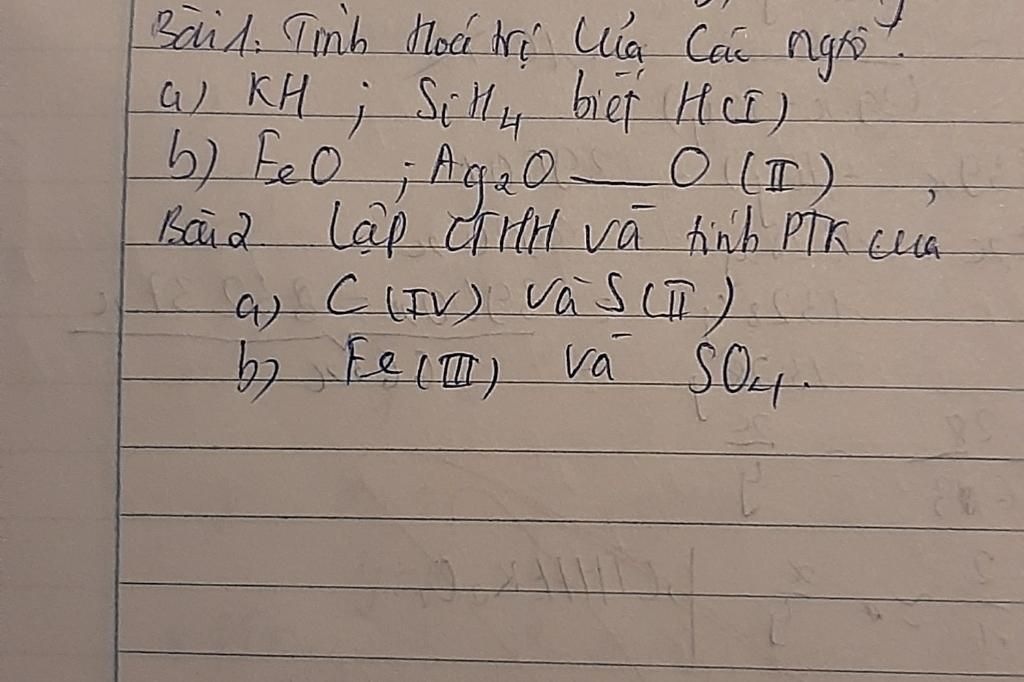 Bài 1: Tính Hoá trị của các ngtố.
a) KH ; SiH4 biết H(I)
b) FeO ; Ag2O — O (II)
Bài 2 Lập CTHH và tính PTK của
a) C (IV) và S (II)
b) Fe (III) và SO4.